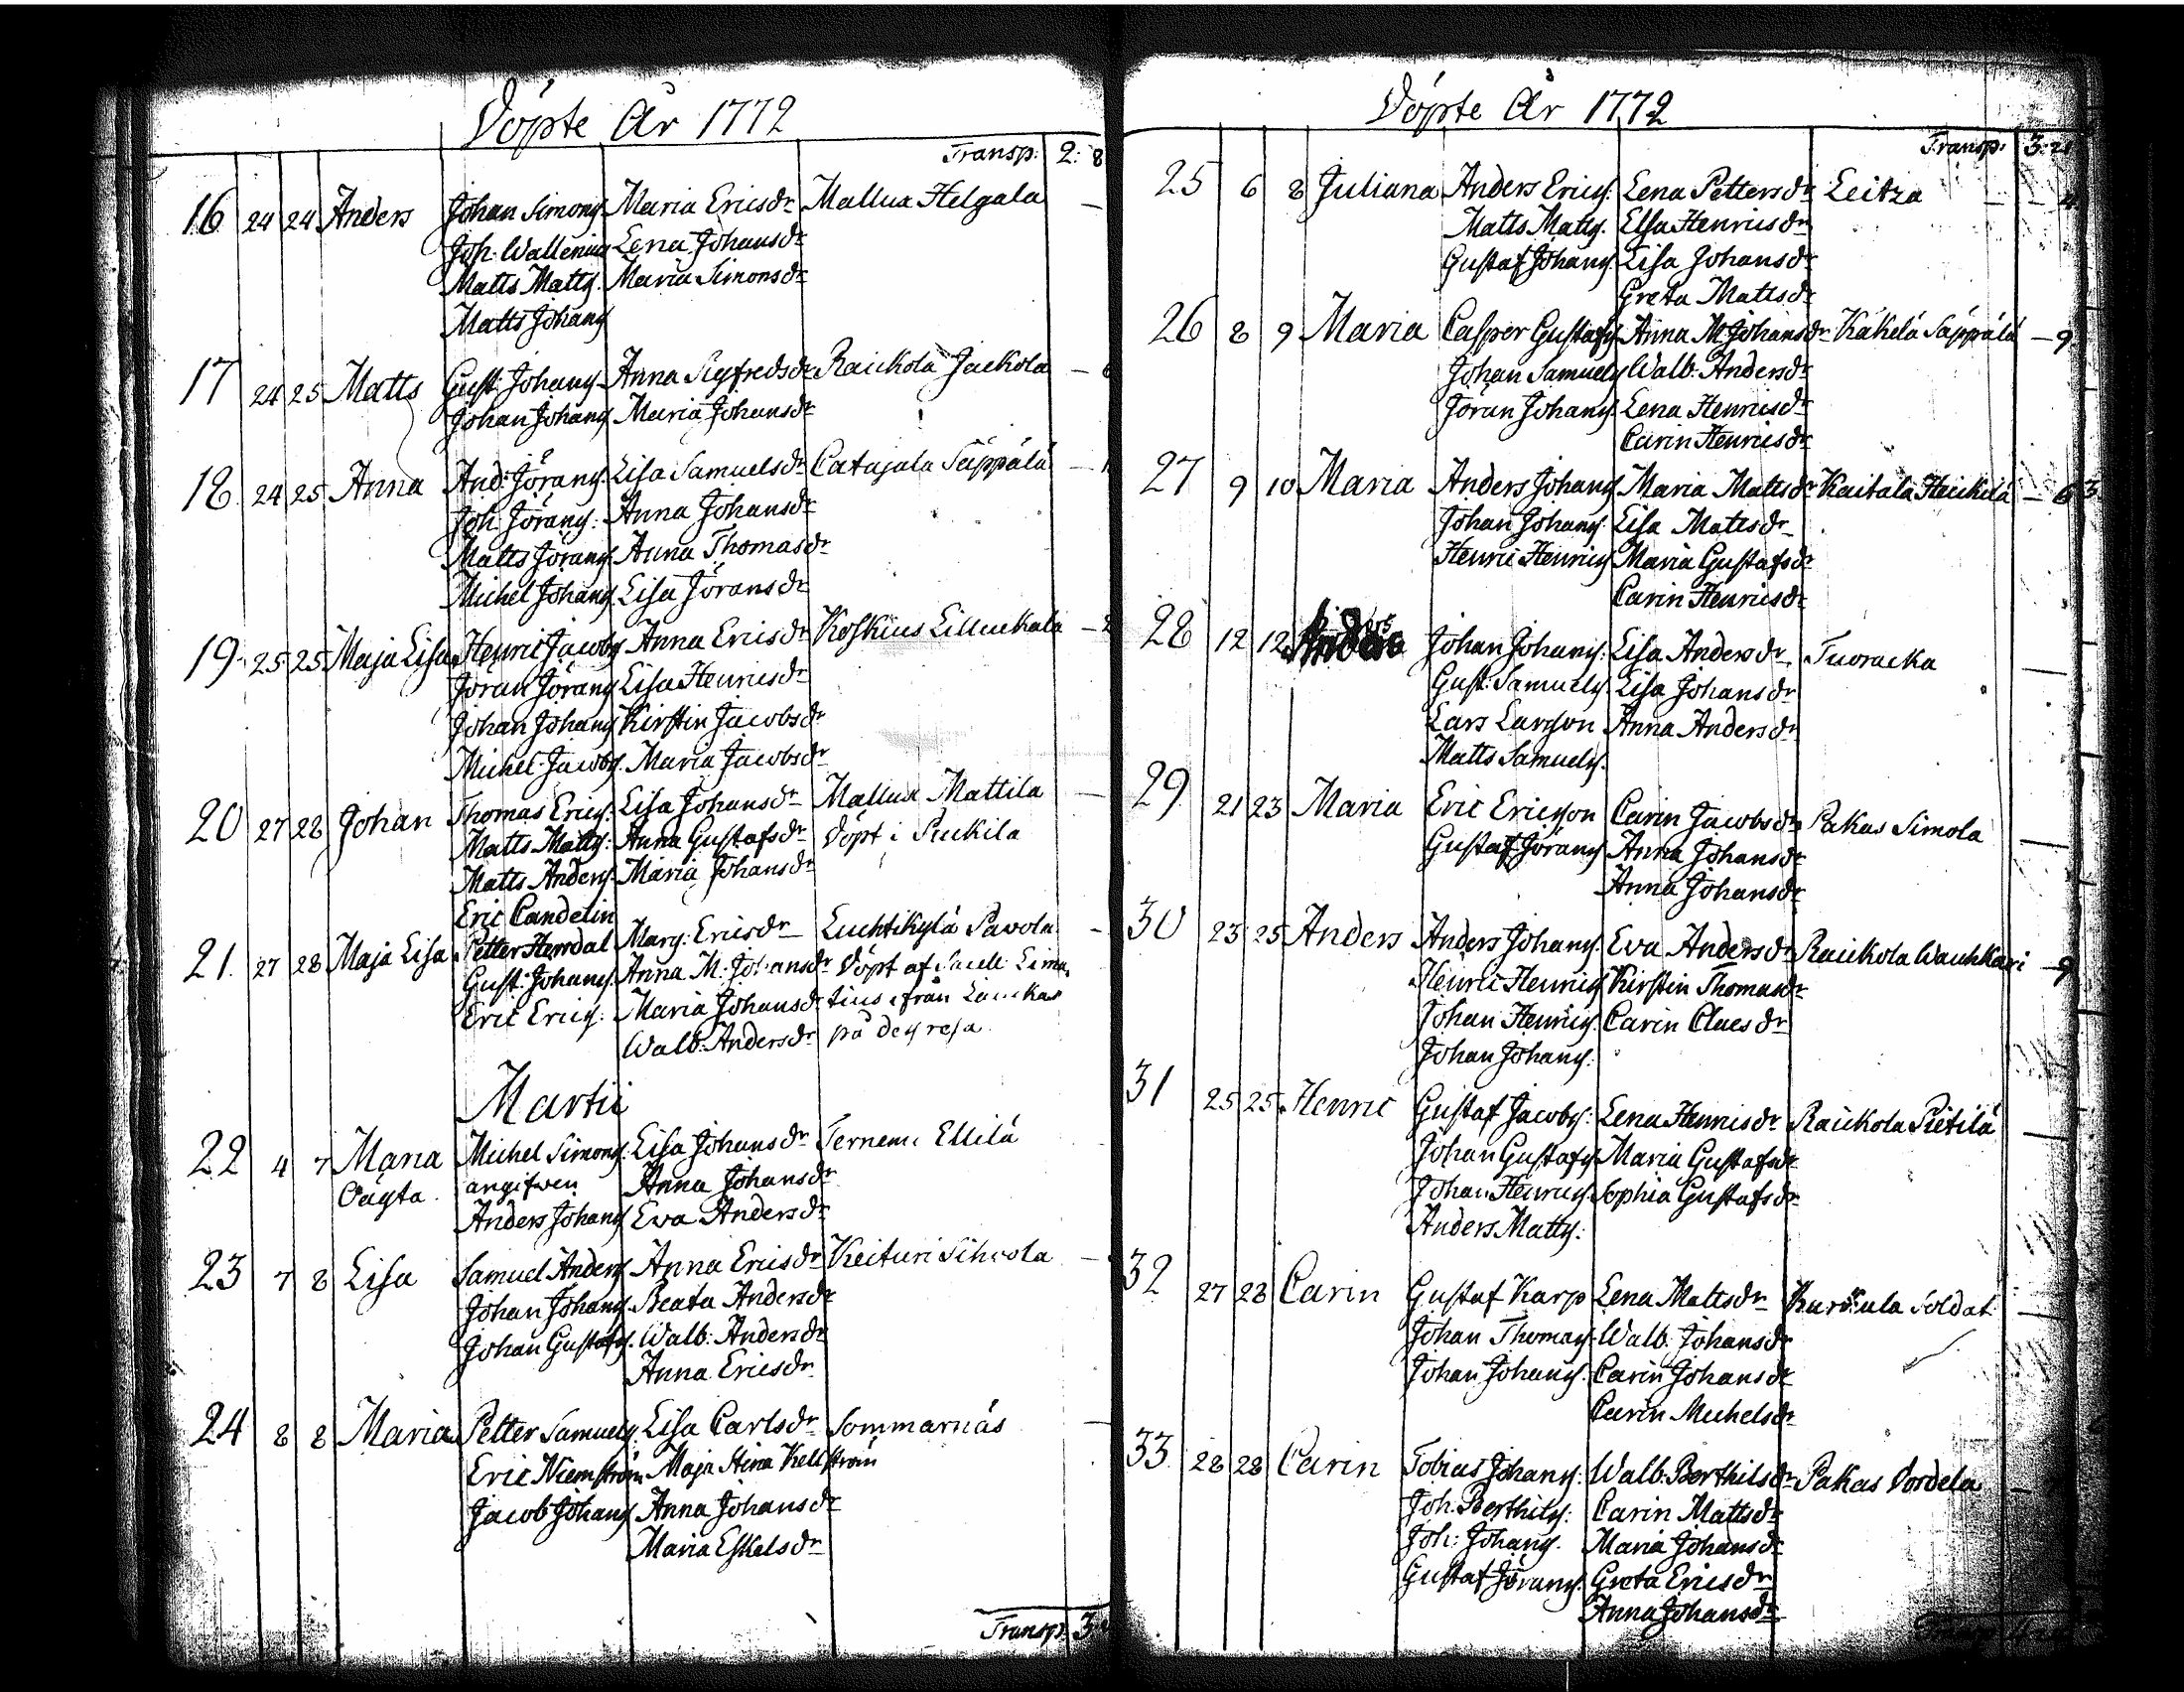 Döpte År 1772
Transp: 2: 8
16 24 24 Anders Johan Simons. Maria Ericsdr Mallux Helgala —
Joh. Wallenius Lena Johansdr
Matts Matts. Maria Simonsdr
Matts Johans
17 24 25 Matts Gust: Johans. Anna Sigfredsdr Raickola Jackola — 6
Johan Johans Maria Johansdr
18 24 25 Anna And: Jörans. Lisa Samuelsdr Catajala Säppälä —
Joh: Jörans: Anna Johansdr
Matts Jörans. Anna Thomasdr
Michel Johans Lisa Jöransdr
19. 25 25 Maja Lisa Henric Jacobs Anna Ericsdr Koskius —
Jöran Jörans Lisa Henricsdr
Johan Johans Kirstin Jacobsdr
Michel Jacobs. Maria Jacobsdr
20 27 28 Johan Thomas Erics: Lisa Johansdr Mallux Mattila —
Matts Matts: Anna Gustafsdr Döpt i Puckila
Matts Anders. Maria Johansdr
Eric Candelin
21. 27 28 Maja Lisa Petter Hemdal Marg: Ericsdr Luchtikylä Pavola —
Gust: Johans. Anna M: Johansdr Döpt af
Eric Erics: Maria Johansdr ifrån
Walb: Andersdr på dess resa
Martii
22 4 7 Maria Michel Simons: Lisa Johansdr Ternemi Ellilä
Oägta. angifwen Anna Johansdr
Anders Johans Eva Andersdr
23 7 8 Lisa Samuel Anders Anna Ericsdr Keituri Sihvola —
Johan Johans. Beata Andersdr
Johan Gustafs. Walb: Andersdr
Anna Ericsdr
24 8 8 Maria Petter Samuels Lisa Carlsdr Sommarnäs —
Eric Niemström Maja Stina Kellström
Jacob Johans Anna Johansdr
Maria Eskelsdr
Transp: 3
Döpte År 1772
Transp: 3:21
25 6 8 Juliana Anders Erics: Lena Pettersdr Leitza — 4
Matts Matts. Elsa Henricsdr
Gustaf Johans. Lisa Johansdr
Greta Mattsdr
26 8 9 Maria Casper Gustafs Anna M Johansdr Käkelä Säppälä — 9
Johan Samuels Walb: Andersdr
Jöran Johans. Lena Henricsdr
Carin Henricsdr
27 9 10 Maria Anders Johans Maria Mattsdr Kaitala Heickilä — 6
Johan Johans: Lisa Mattsdr
Henric Henrics Maria Gustafsdr
Carin Henricsdr
28 12 12 Anders Johan Johans: Lisa Andersdr Tuoracka —
Gust: Samuels. Lisa Johansdr
Lars Larsson Anna Andersdr
Matts Samuels.
29 21 23 Maria Eric Ericsson Carin Jacobsdr Pakas Simola —
Gustaf Jörans Anna Johansdr
Anna Johansdr
30 23 25 Anders Anders Johans. Eva Andersdr Raickola Wauhkari — 9
Henric Henrics Kirstin Thomasdr
Johan Henrics. Carin Claesdr
Johan Johans:
31 25 25 Henric Gustaf Jacobs: Lena Henricsdr Raickola Pietilä —
Johan Gustafs Maria Gustafsdr
Johan Henrics. Sophia Gustafsdr
Anders Matts:
32 27 28 Carin Gustaf Karp Lena Mattsdr Kurckula Soldat —
Johan Thomas. Walb: Johansdr
Johan Johans. Carin Johansdr
Carin Michelsdr
33 28 28 Carin Tobias Johans: Walb: Berthilsdr Pakas Dordela —
Joh: Berthils: Carin Mattsdr
Joh: Johans. Maria Johansdr
Gustaf Jörans: Greta Ericsdr
Anna Johansdr